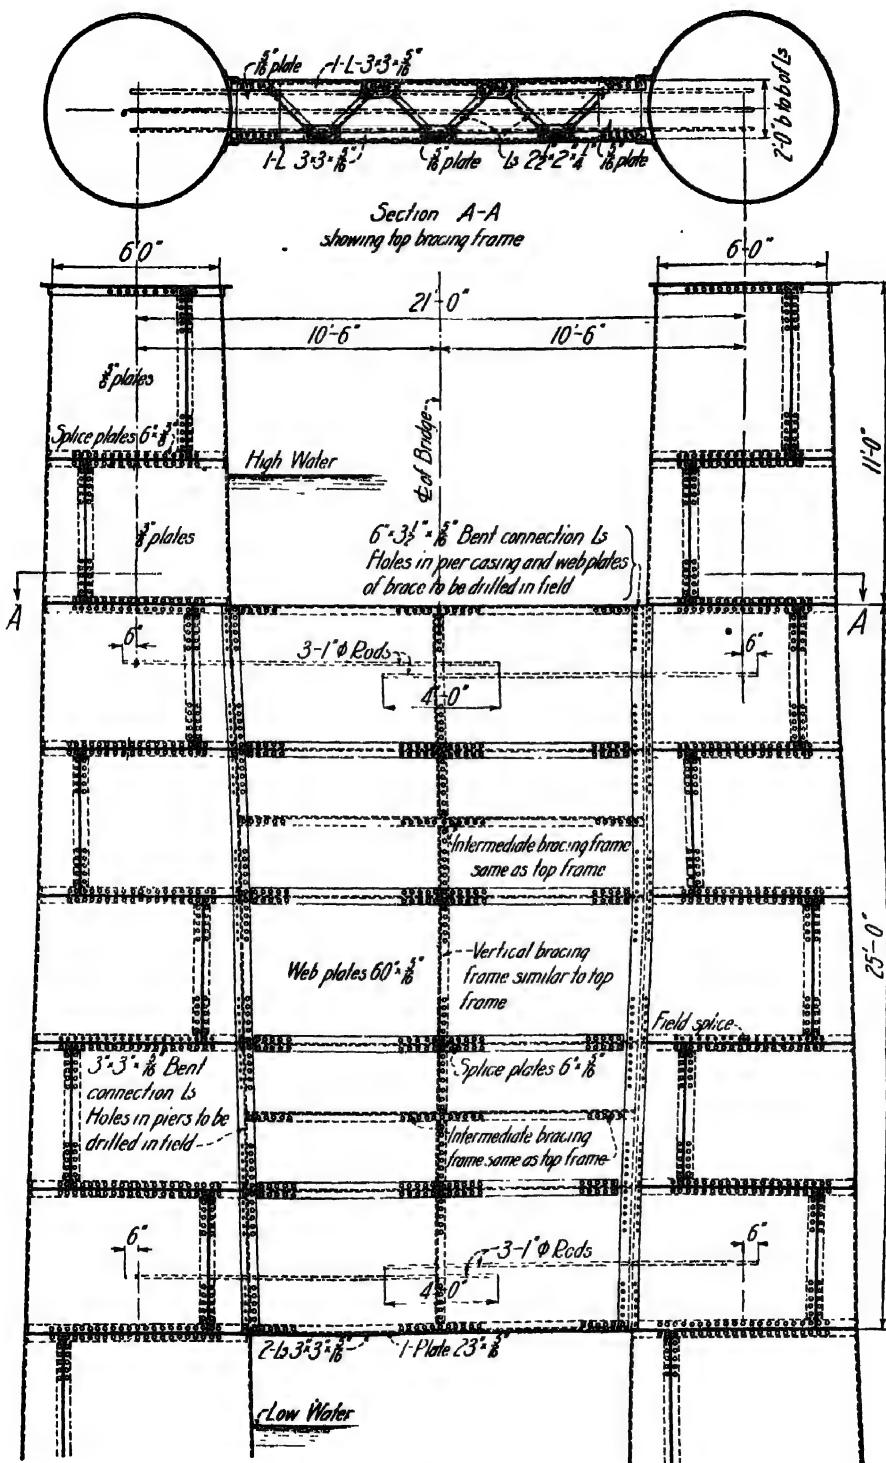 5/16" plate
1-L-3"×3"×5/16"
2'-0" b to b of Ls
1-L 3"×3"×5/16"
5/16" plate
Ls 2 1/2"×2"×1/4"
5/16" plate
Section A-A
showing top bracing frame
6'0"
6'-0"
21'-0"
10'-6"
10'-6"
3/8" plates
℄ of Bridge
Splice plates 6"×3/8"
High Water
11'-0"
3/8" plates
6"×3 1/2"×5/16" Bent connection Ls
Holes in pier casing and web plates
of brace to be drilled in field
A
A
6"
3-1"ϕ Rods
6"
4'-0"
Intermediate bracing frame
same as top frame
Web plates 60"×5/16"
Vertical bracing
frame similar to top
frame
25'-0"
Field splice
3"×3"×5/16" Bent
connection Ls
Holes in piers to be
drilled in field
Splice plates 6"×5/16"
Intermediate bracing
frame same as top frame
6"
3-1"ϕ Rods
6"
4'-0"
2-Ls 3"×3"×5/16"
1-Plate 23"×5/16"
Low Water